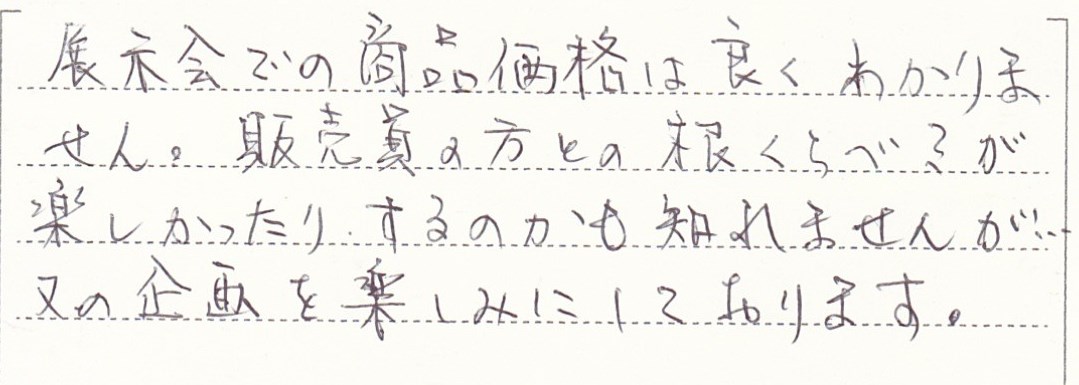 展示会での商品価格は良くわかりま
せん。販売員の方との根くらべ？が
楽しかったりするのかも知れませんが…
又の企画を楽しみにしております。